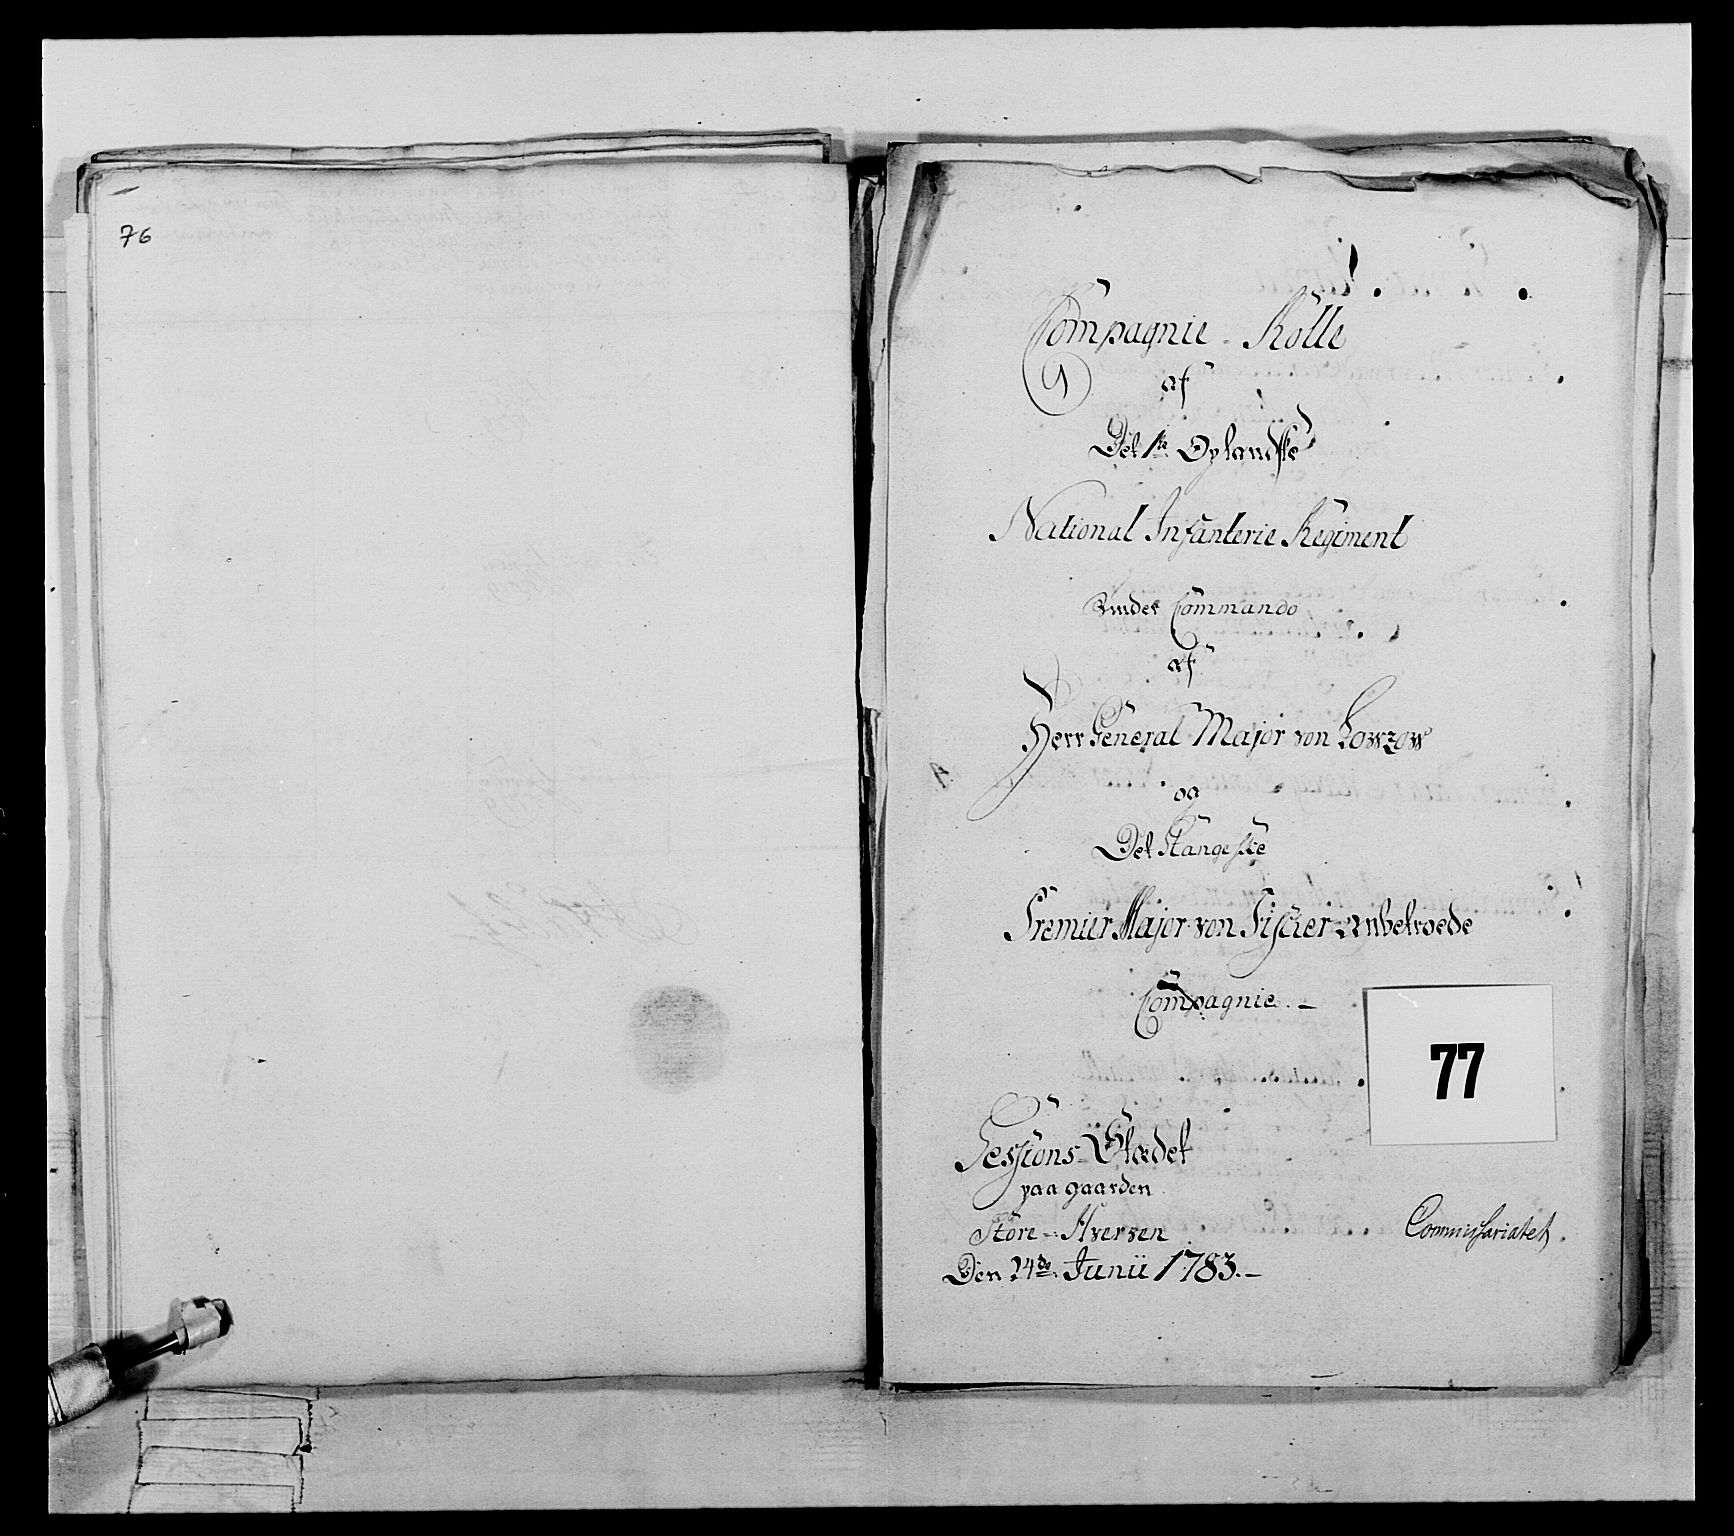 76
Compagnie-Rolle
1
af
Det 1te Oplandske
National Infanterie Regiment
Under Commando
af
Herr General-Major von Lowzow
og
Det Stangeske
Premier Major von Fischer Anbetroede
Compagnie.
77
Sessions-Stædet
paa gaarden
Store-Hverven
Commissariatet
Den 24de Junii 1783.